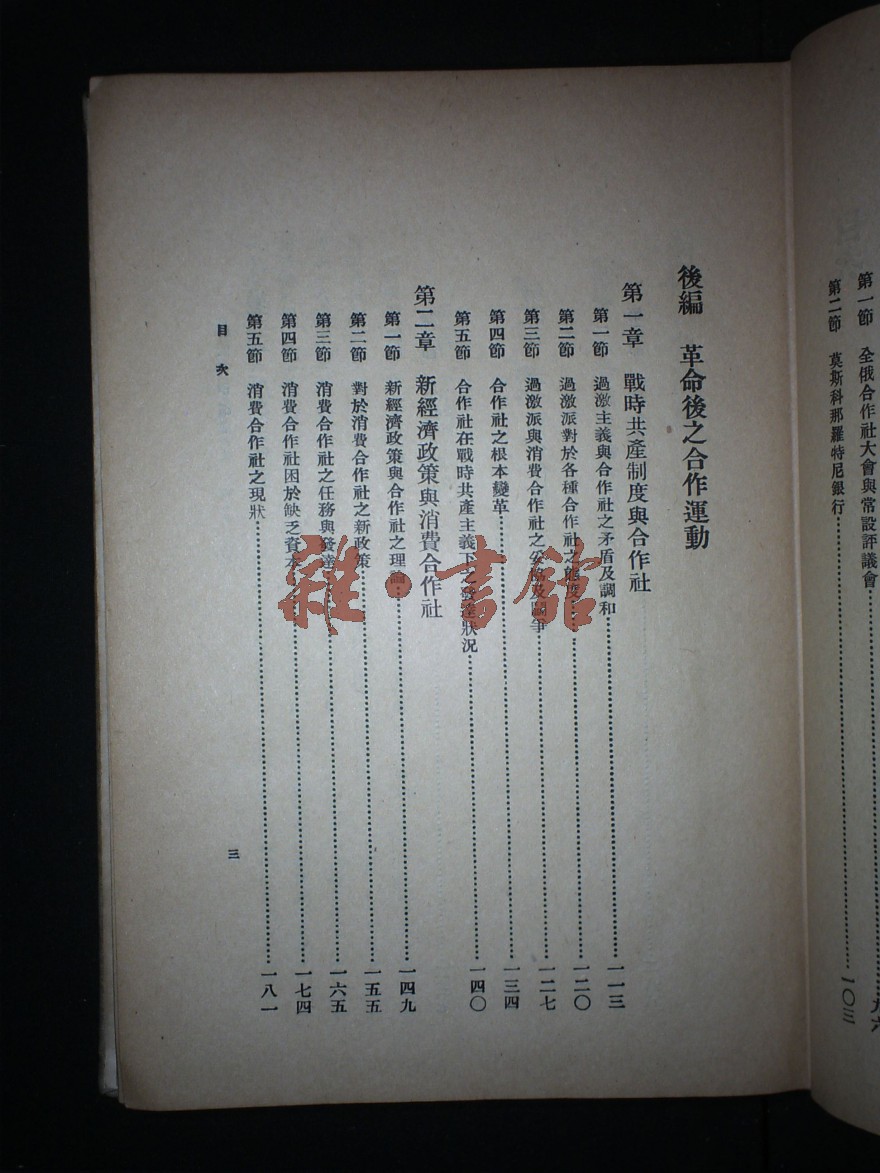 第一節 全俄合作社大會與常設評議會……九六
第二節 莫斯科那羅特尼銀行……一〇三
後編 革命後之合作運動
第一章 戰時共產制度與合作社
第一節 過激主義與合作社之矛盾及調和……一一三
第二節 過激派對於各種合作社之態度……一二〇
第三節 過激派與消費合作社之妥協及鬭爭……一二七
第四節 合作社之根本變革……一三四
第五節 合作社在戰時共產主義下之發達狀況……一四〇
第二章 新經濟政策與消費合作社
第一節 新經濟政策與合作社之理論……一四九
第二節 對於消費合作社之新政策……一五五
第三節 消費合作社之任務與發達……一六五
第四節 消費合作社困於缺乏資本……一七四
第五節 消費合作社之現狀……一八一
目次
三
雜·書館